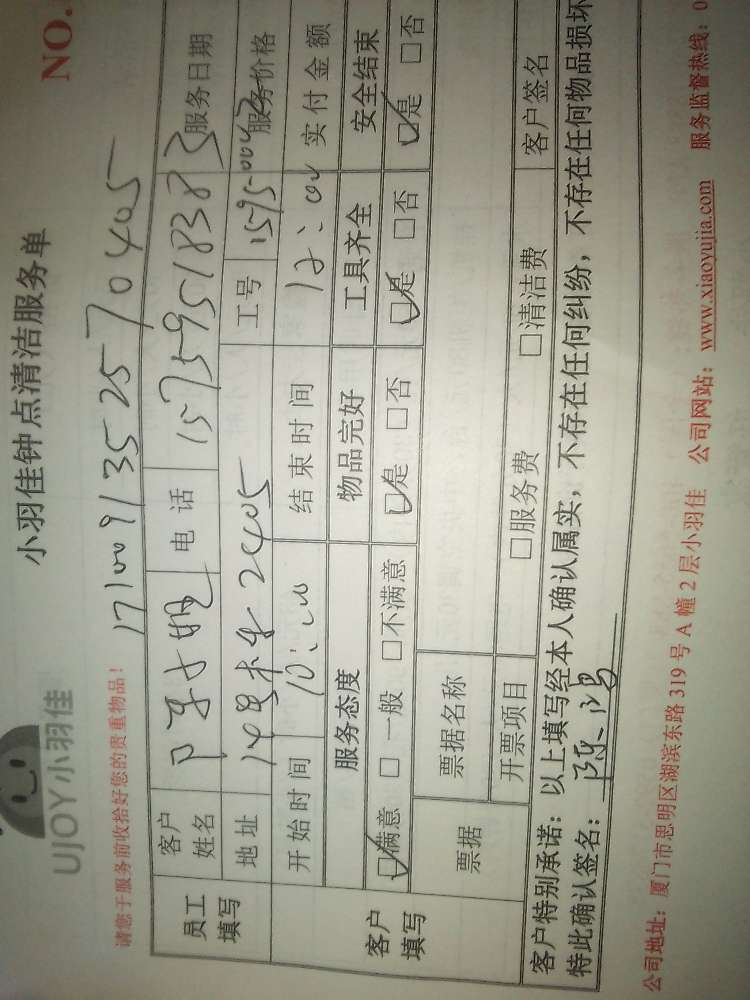 UJOY小羽佳
小羽佳钟点清洁服务单
NO.
请您于服务前收拾好您的贵重物品!
1710091352570405
员工填写
客户姓名 电话 15759518383 服务日期
地址 2405 工号 服务价格
客户填写
开始时间 10:00 结束时间 12:00 实付金额
服务态度 物品完好 工具齐全 安全结束
☑满意 □一般 □不满意 ☑是 □否 ☑是 □否 ☑是 □否
票据 票据名称
开票项目 □服务费 □清洁费 客户签名
客户特别承诺:以上填写经本人确认属实,不存在任何纠纷,不存在任何物品损坏
特此确认签名:陈
公司地址:厦门市思明区湖滨东路319号A幢2层小羽佳 公司网站:www.xiaoyujia.com 服务监督热线:0